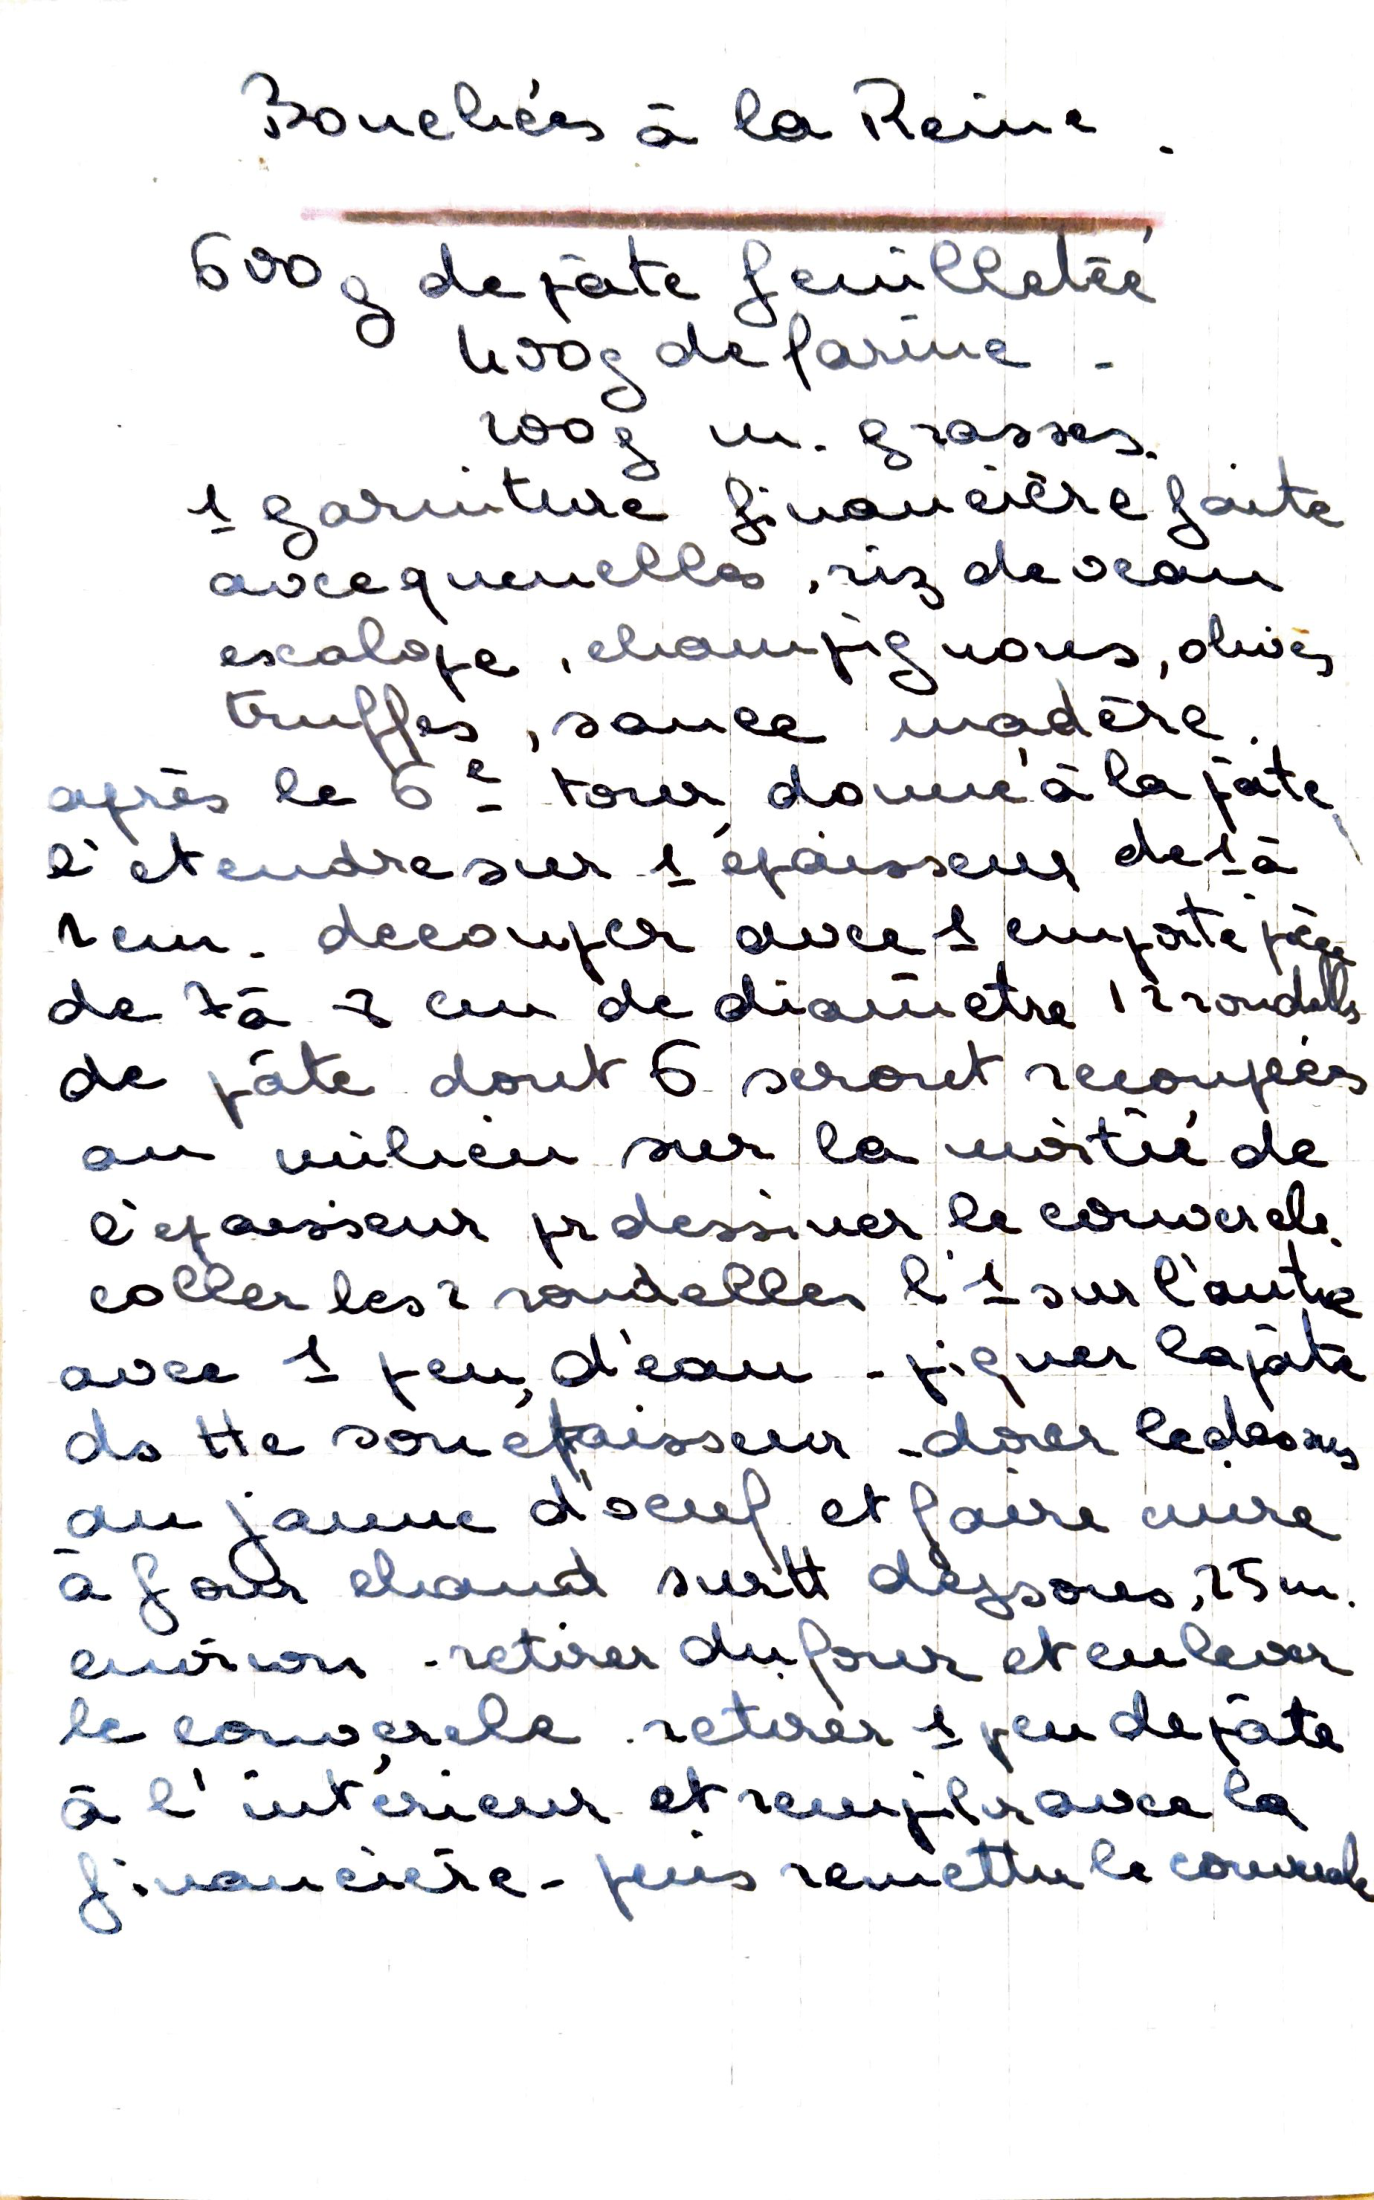 Bouchées à la Reine.
600g de pâte feuilletée
400g de farine -
200g m. grasses.
1 garniture financière faite
avec quenelles, riz de veau
escalope, champignons, olives
truffes, sauce madère.
après le 6e tour donné à la pâte
l'etendre sur 1 épaisseur de 1 à
2 cm. decouper avec 1 emporte pièce
de 7 à 8 cm de diamètre 12 rondelles
de pâte dont 6 seront recoupées
au milieu sur la moitié de
l'epaisseur pr dessiner le couvercle.
coller les 2 rondelles l'1 sur l'autre
avec 1 peu d'eau - piquer la pâte
ds tte son épaisseur - dorer le dessus
au jaune d'oeuf et faire cuire
à four chaud surtt dessous, 25 m.
environ - retirer du four et enlever
le couvercle. retirer 1 peu de pâte
à l'intérieur et remplir avec la
financière - puis remettre le couvercle